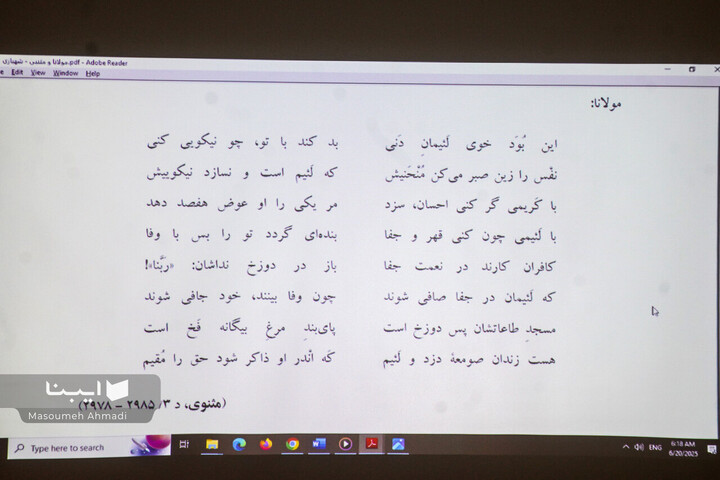 مولانا و مثنی - شهبازی.pdf - Adobe Reader
Edit View Window Help
مولانا:
این بُوَد خوی لَئیمانِ دَنی بد کند با تو، چو نیکویی کنی
نفْس را زین صبر می‌کن مُنْحَنیش که لَئیم است و نسازد نیکوییش
با کَریمی گر کنی احسان، سزد مر یکی را او عوض هفصد دهد
با لَئیمی چون کنی قهر و جفا بنده‌ای گردد تو را بس با وفا
کافران کارند در نعمت جفا باز در دوزخ نداشان: «ربَّنا»!
که لَئیمان در جفا صافی شوند چون وفا بینند، خود جافی شوند
مسجدِ طاعاتشان پس دوزخ است پای‌بندِ مرغِ بیگانه فَخ است
هست زندان صومعهٔ دزد و لَئیم کَه اندر او ذاکر شود حق را مُقیم
(مثنوی، د ۳/ ۲۹۸۵ – ۲۹۷۸)
ایبنا
Masoumeh Ahmadi
Type here to search
ENG
6:18 AM
6/20/2025